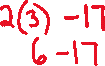 2(3) -17
6 -17